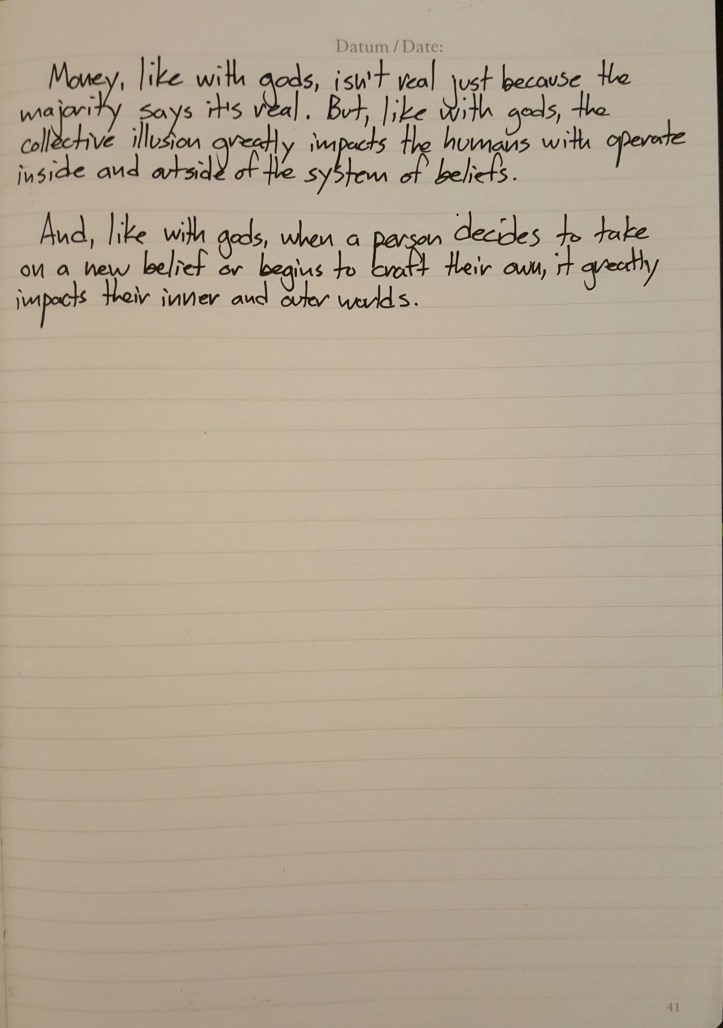 Datum / Date:
Money, like with gods, isn't real just because the
majority says it's real. But, like with gods, the
collective illusion greatly impacts the humans with operate
inside and outside of the system of beliefs.
And, like with gods, when a person decides to take
on a new belief or begins to craft their own, it greatly
impacts their inner and outer worlds.
41